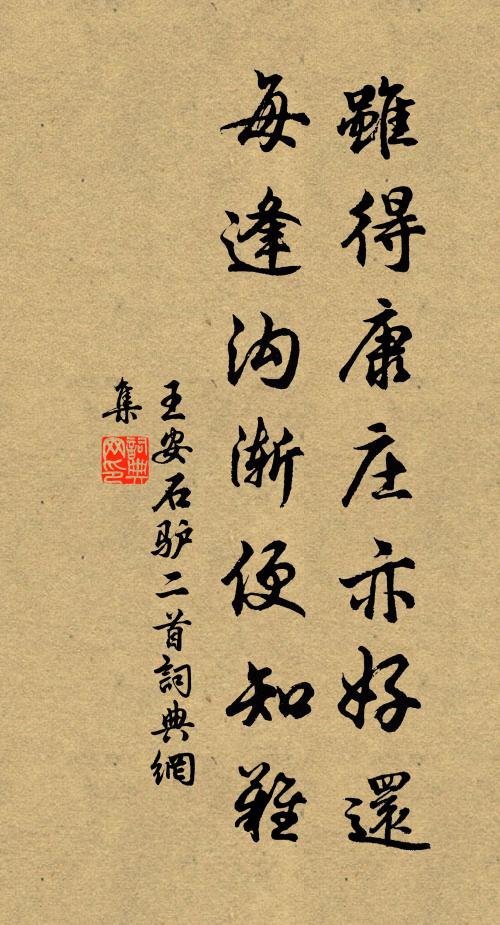 雖得康庄亦好還
每逢沟渐便知難
王安石驴二首詞典網
集
詞典
网印